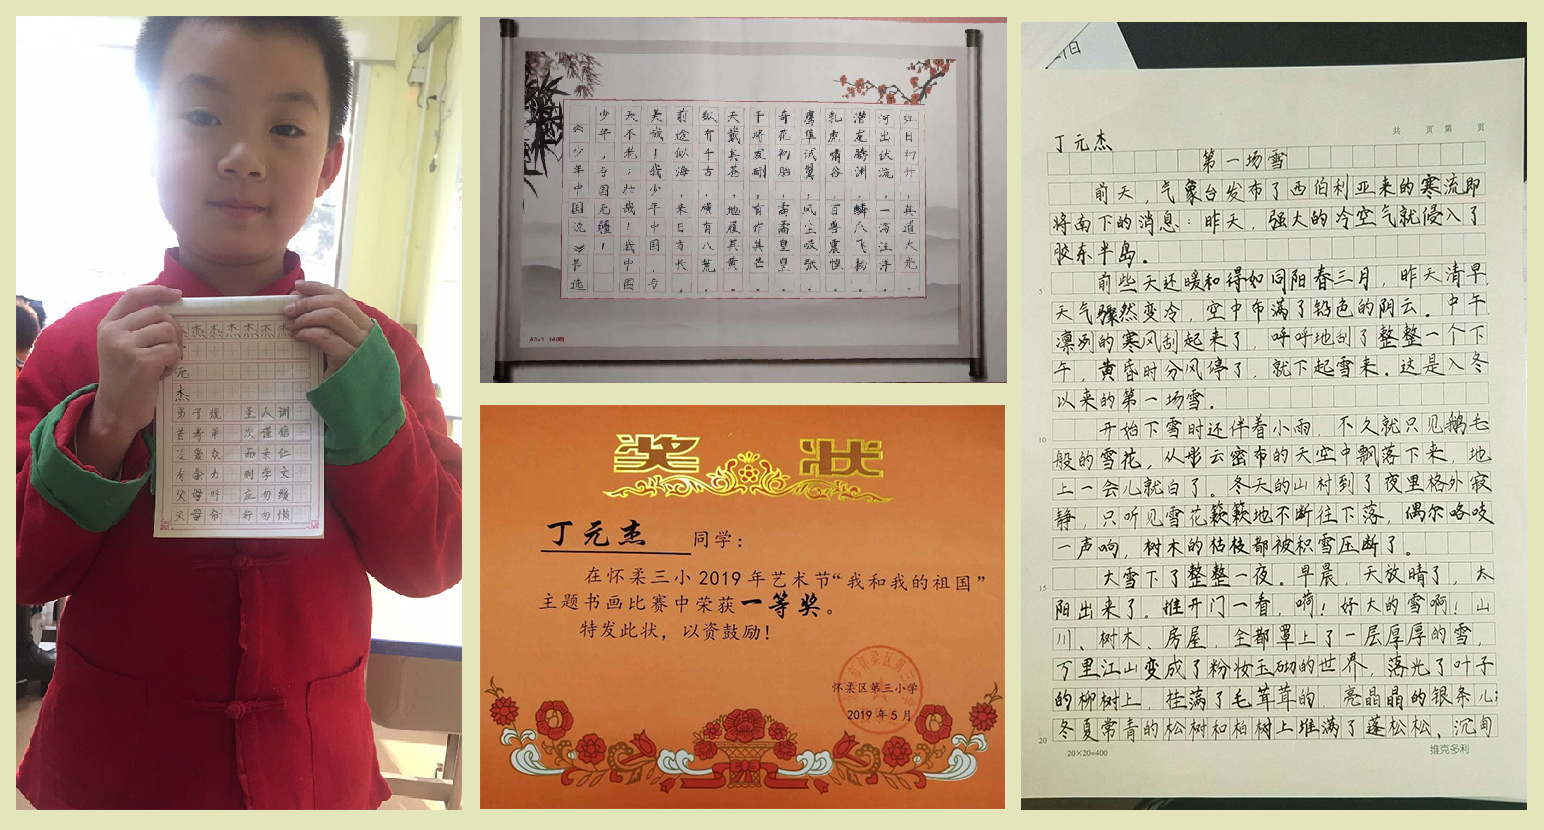 杰杰杰杰杰杰
元
杰
弟子规 圣人训
首孝弟 次谨信
泛爱众 而亲仁
有余力 则学文
父母呼 应勿缓
父母命 行勿懒
红日初升,其道大光。
河出伏流,一泻汪洋。
潜龙腾渊,鳞爪飞扬。
乳虎啸谷,百兽震惶。
鹰隼试翼,风尘吸张。
奇花初胎,矞矞皇皇。
干将发硎,有作其芒。
天戴其苍,地履其黄。
纵有千古,横有八荒。
前途似海,来日方长。
美哉!我少年中国,与
天不老;壮哉!我中国
少年,与国无疆!
《少年中国说》节选
奖 状
丁元杰 同学:
在怀柔三小2019年艺术节“我和我的祖国”
主题书画比赛中荣获一等奖。
特发此状,以资鼓励!
怀柔区第三小学
2019年5月
共 页 第 页
丁元杰
第一场雪
前天,气象台发布了西伯利亚来的寒流即
将南下的消息:昨天,强大的冷空气就侵入了
胶东半岛。
5 前些天还暖和得如同阳春三月,昨天清早,
天气骤然变冷,空中布满了铅色的阴云。中午,
凛冽的寒风刮起来了,呼呼地刮了整整一个下
午,黄昏时分风停了,就下起雪来。这是入冬
以来的第一场雪。
10 开始下雪时还伴着小雨,不久就只见鹅毛
般的雪花,从彤云密布的天空中飘落下来,地
上一会儿就白了。冬天的山村到了夜里格外寂
静,只听见雪花簌簌地不断往下落,偶尔咯吱
一声响,树木的枯枝都被积雪压断了。
15 大雪下了整整一夜。早晨,天放晴了,太
阳出来了。推开门一看,嗬!好大的雪啊!山
川、树木、房屋,全都罩上了一层厚厚的雪,
万里江山变成了粉妆玉砌的世界,落光了叶子
的柳树上,挂满了毛茸茸的,亮晶晶的银条儿;
20 冬夏常青的松树和柏树上堆满了蓬松松、沉甸
20×20=400 维克多利